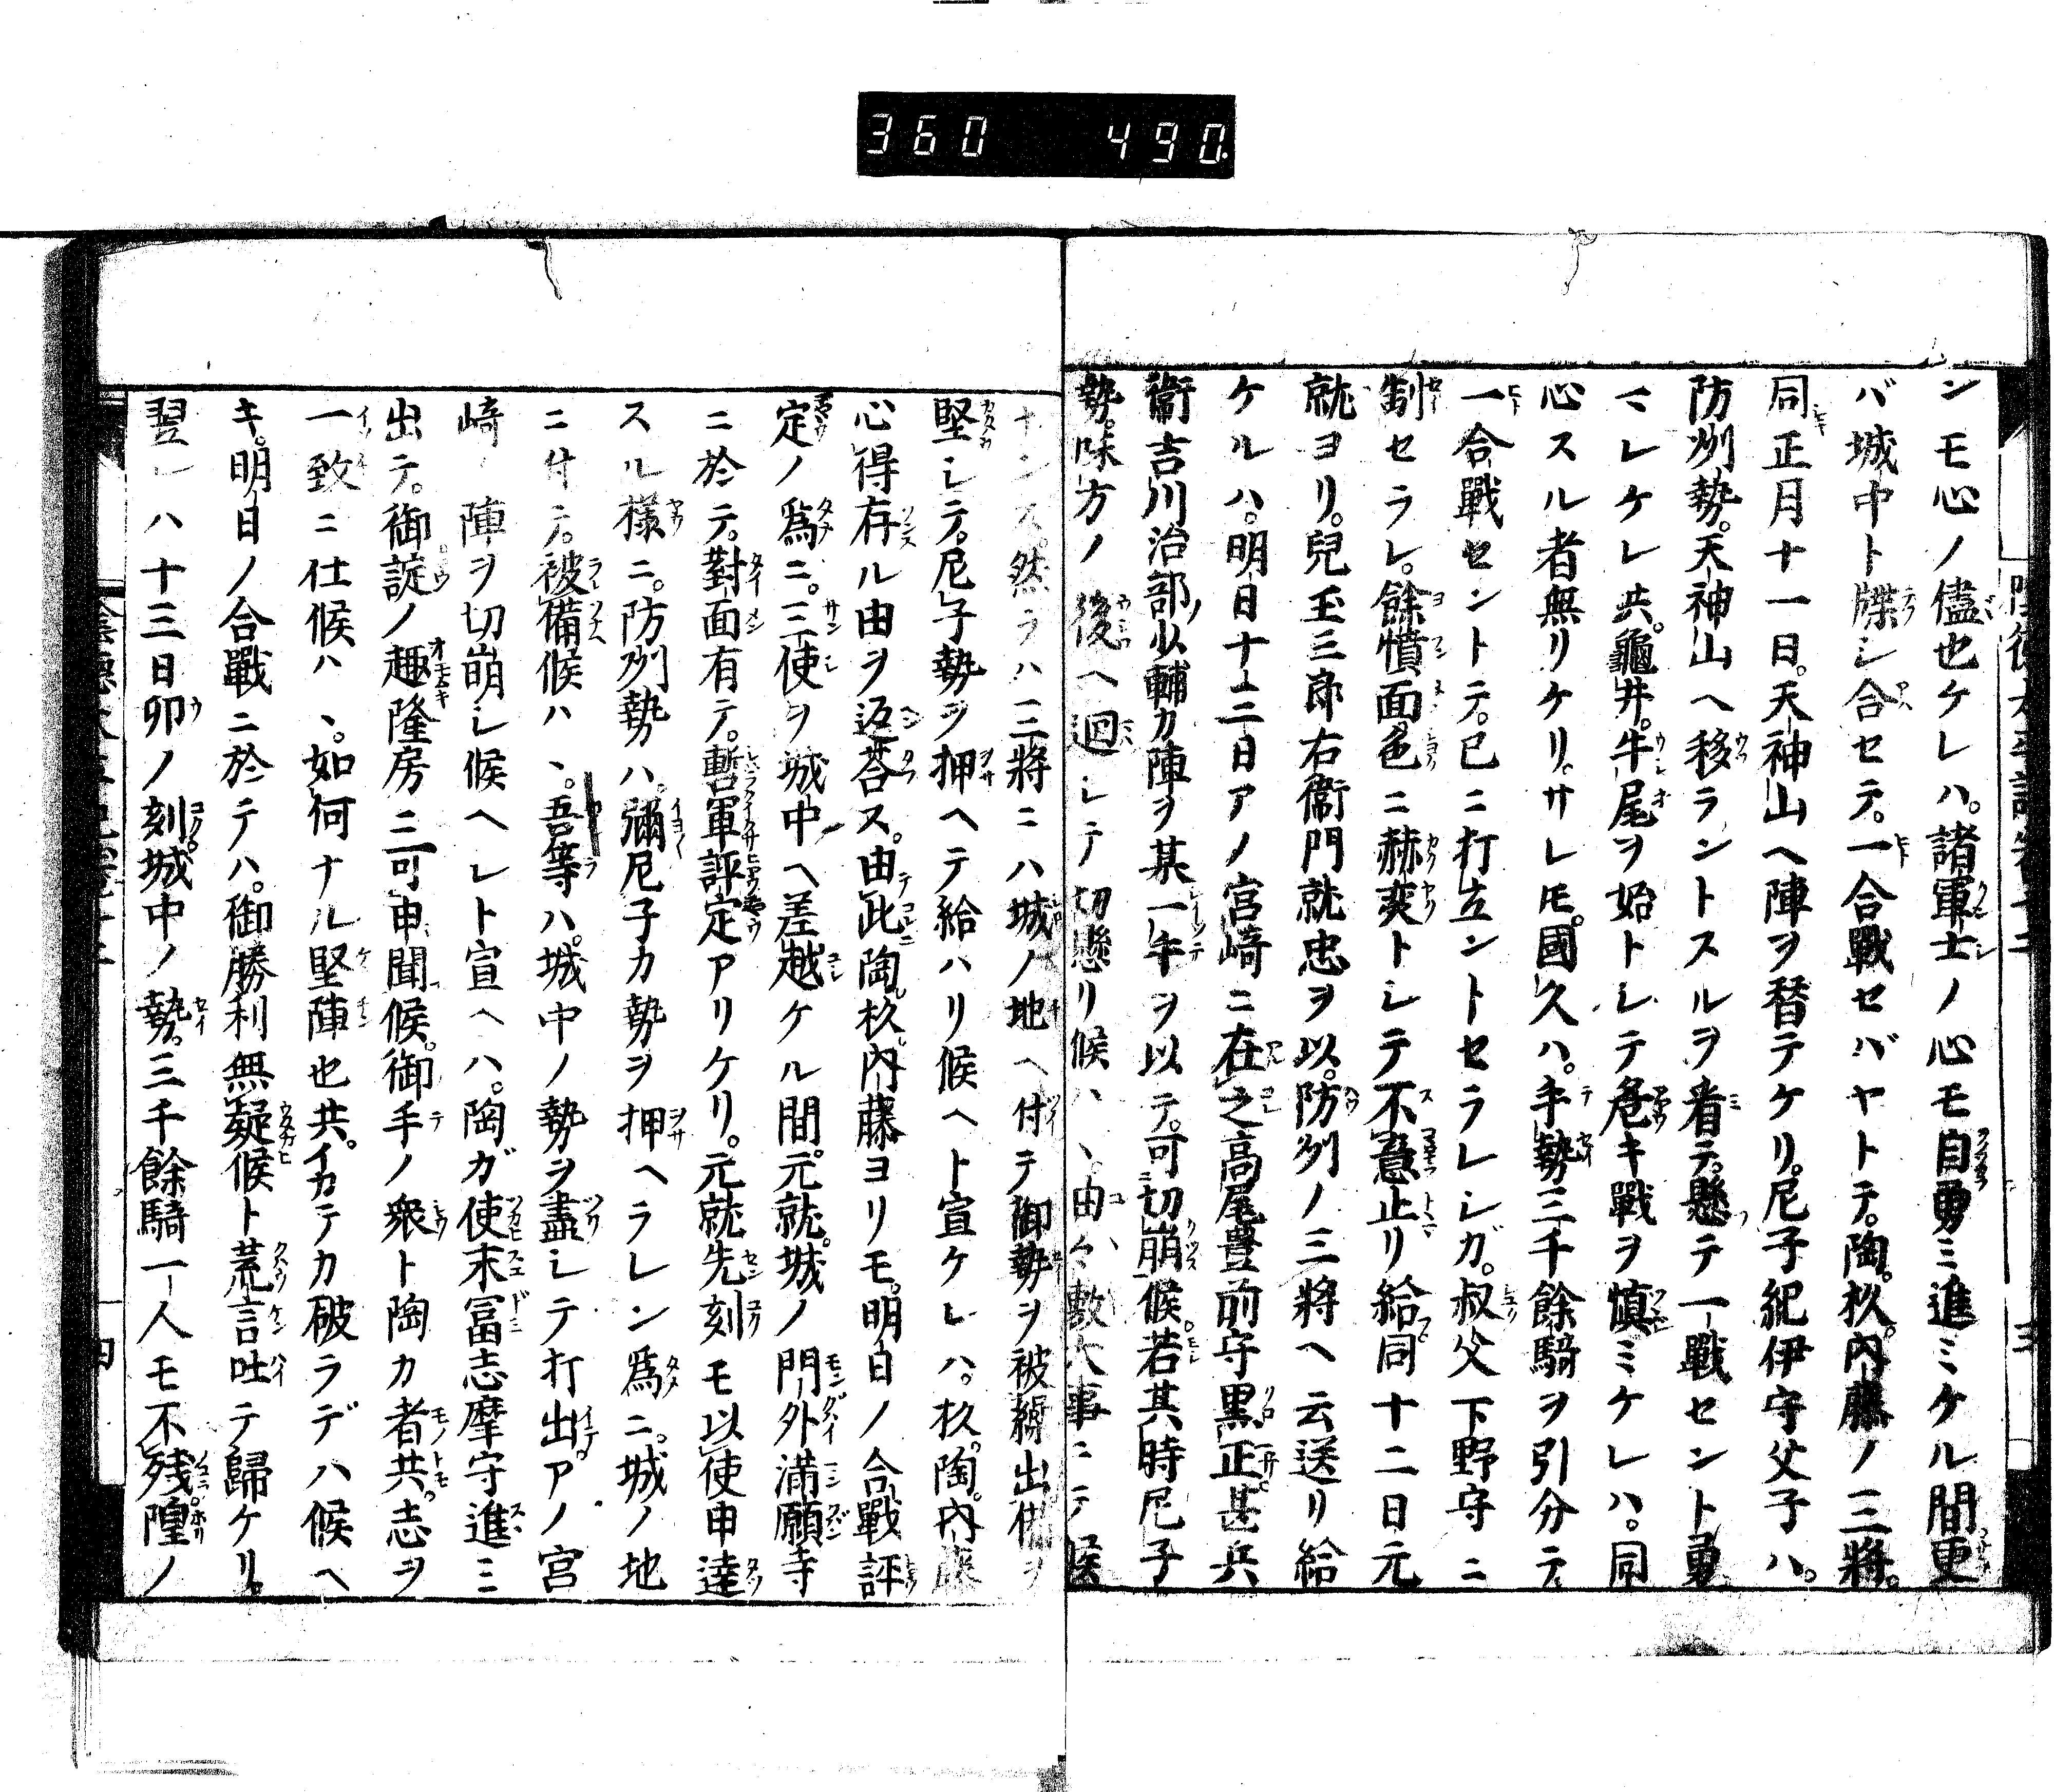 360 490.
ンモ心ノ儘也ケレハ。諸軍士ノ心モ自勇ミ進ミケル間更
バ城中ト牒シ合セテ。一合戰セバヤトテ。陶。杦。内藤ノ三將。
同正月十一日。天神山ヘ陣ヲ替テケリ。尼子紀伊守父子ハ。
防州勢。天神山ヘ移ラントスルヲ看テ。懸テ一戰セント勇
ミレケレ共。龜井。牛尾ヲ始トレテ危キ戰ヲ愼ミケレハ。同
心スル者無リケリ。サレ𪜈。國久ハ。手勢三千餘騎ヲ引分テ
一合戰セントテ。已ニ打立ントセラレシガ。叔父下野守ニ
制セラレ。餘憤面色ニ赫奕トレテ不急止リ給同十二日元
就ヨリ。兒玉三郎右衞門就忠ヲ以。防州ノ三將ヘ云送リ給
ケルハ。明日十三日アノ宮﨑ニ在之高尾豊前守黒正甚兵
衞吉川治部少輔カ陣ヲ某一手ヲ以テ。可切崩候。若其時尼子
勢。味方ノ後ヘ廻レテ切懸リ候ハヽ。由々敷大事ニテ候
ナンス。然ラハ三將ニハ城ノ地ヘ付テ御勢ヲ被繰出備ヲ
堅レテ。尼子勢ヲ押ヘテ給ハリ候ヘト宣ケレハ。杦。陶。内藤
心得存ル由ヲ返荅ス。由此陶杦内藤ヨリモ。明日ノ合戰評
定ノ爲ニ。三使ヲ城中ヘ差越ケル間元就。城ノ門外滿願寺
ニ於テ。對面有テ。暫軍評定アリケリ。元就先刻モ以使申達
スル樣ニ。防州勢ハ。彌尼子カ勢ヲ押ヘラレン爲ニ。城ノ地
ニ付テ。被備候ハヽ。吾等ハ。城中ノ勢ヲ盡レテ打出。アノ宮
﨑ノ陣ヲ切崩レ候ヘレト宣ヘハ。陶ガ使末冨志摩守進ミ
出テ。御諚ノ趣隆房ニ可申聞候。御手ノ衆ト陶カ者共。志ヲ
一致ニ仕候ハヽ。如何ナル堅陣也共。イカテカ破ラデハ候ヘ
キ。明日ノ合戰ニ於テハ。御勝利無疑候ト荒言吐テ歸ケリ。
翌レハ十三日卯ノ刻。城中ノ勢。三千餘騎一人モ不殘隍ノ